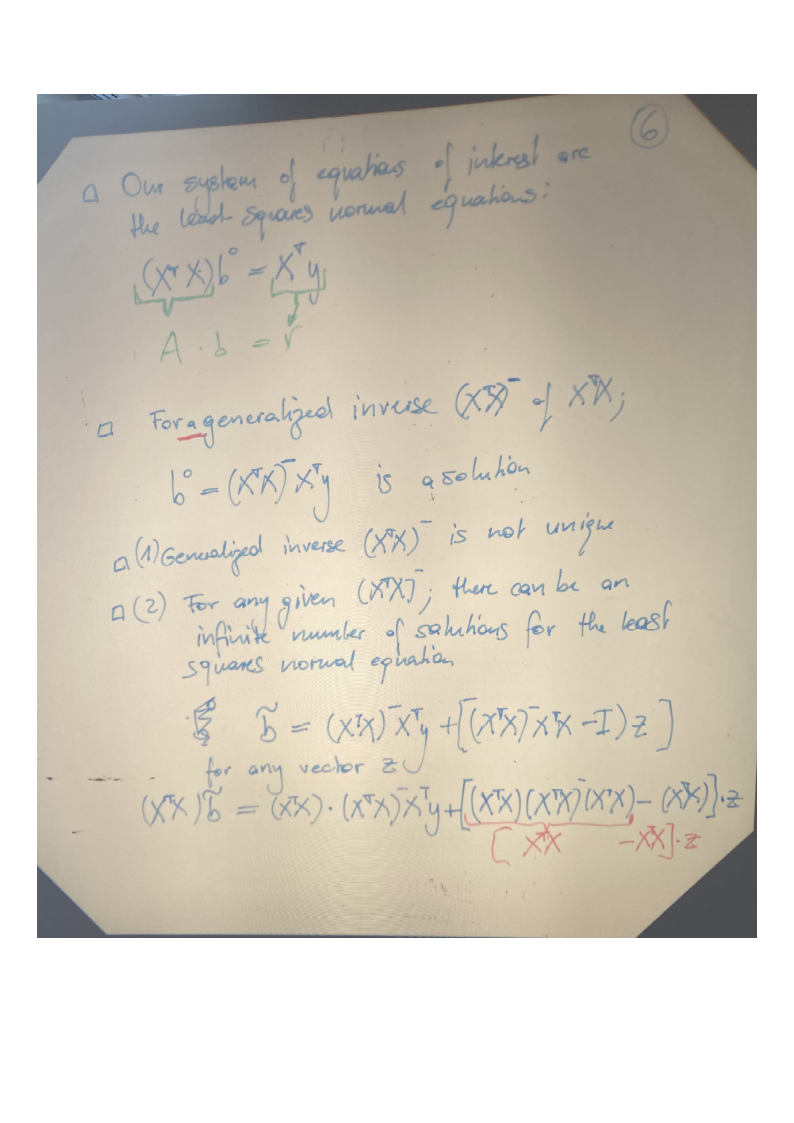 6
□ Our system of equations of interest are
the least squares normal equations:
(XᵀX)b° = Xᵀy
A · b = r
□ For a generalized inverse (XᵀX)⁻ of XᵀX;
b° = (XᵀX)⁻Xᵀy is a solution
□ (1) Generalized inverse (XᵀX)⁻ is not unique
□ (2) For any given (XᵀX)⁻; there can be an
infinite number of solutions for the least
squares normal equation
b̃ = (XᵀX)⁻Xᵀy + [(XᵀX)⁻XᵀX - I)z]
for any vector z
(XᵀX)b̃ = (XᵀX)·(XᵀX)⁻Xᵀy + [(XᵀX)(XᵀX)⁻(XᵀX) - (XᵀX)]·z
[XᵀX - XᵀX]·z